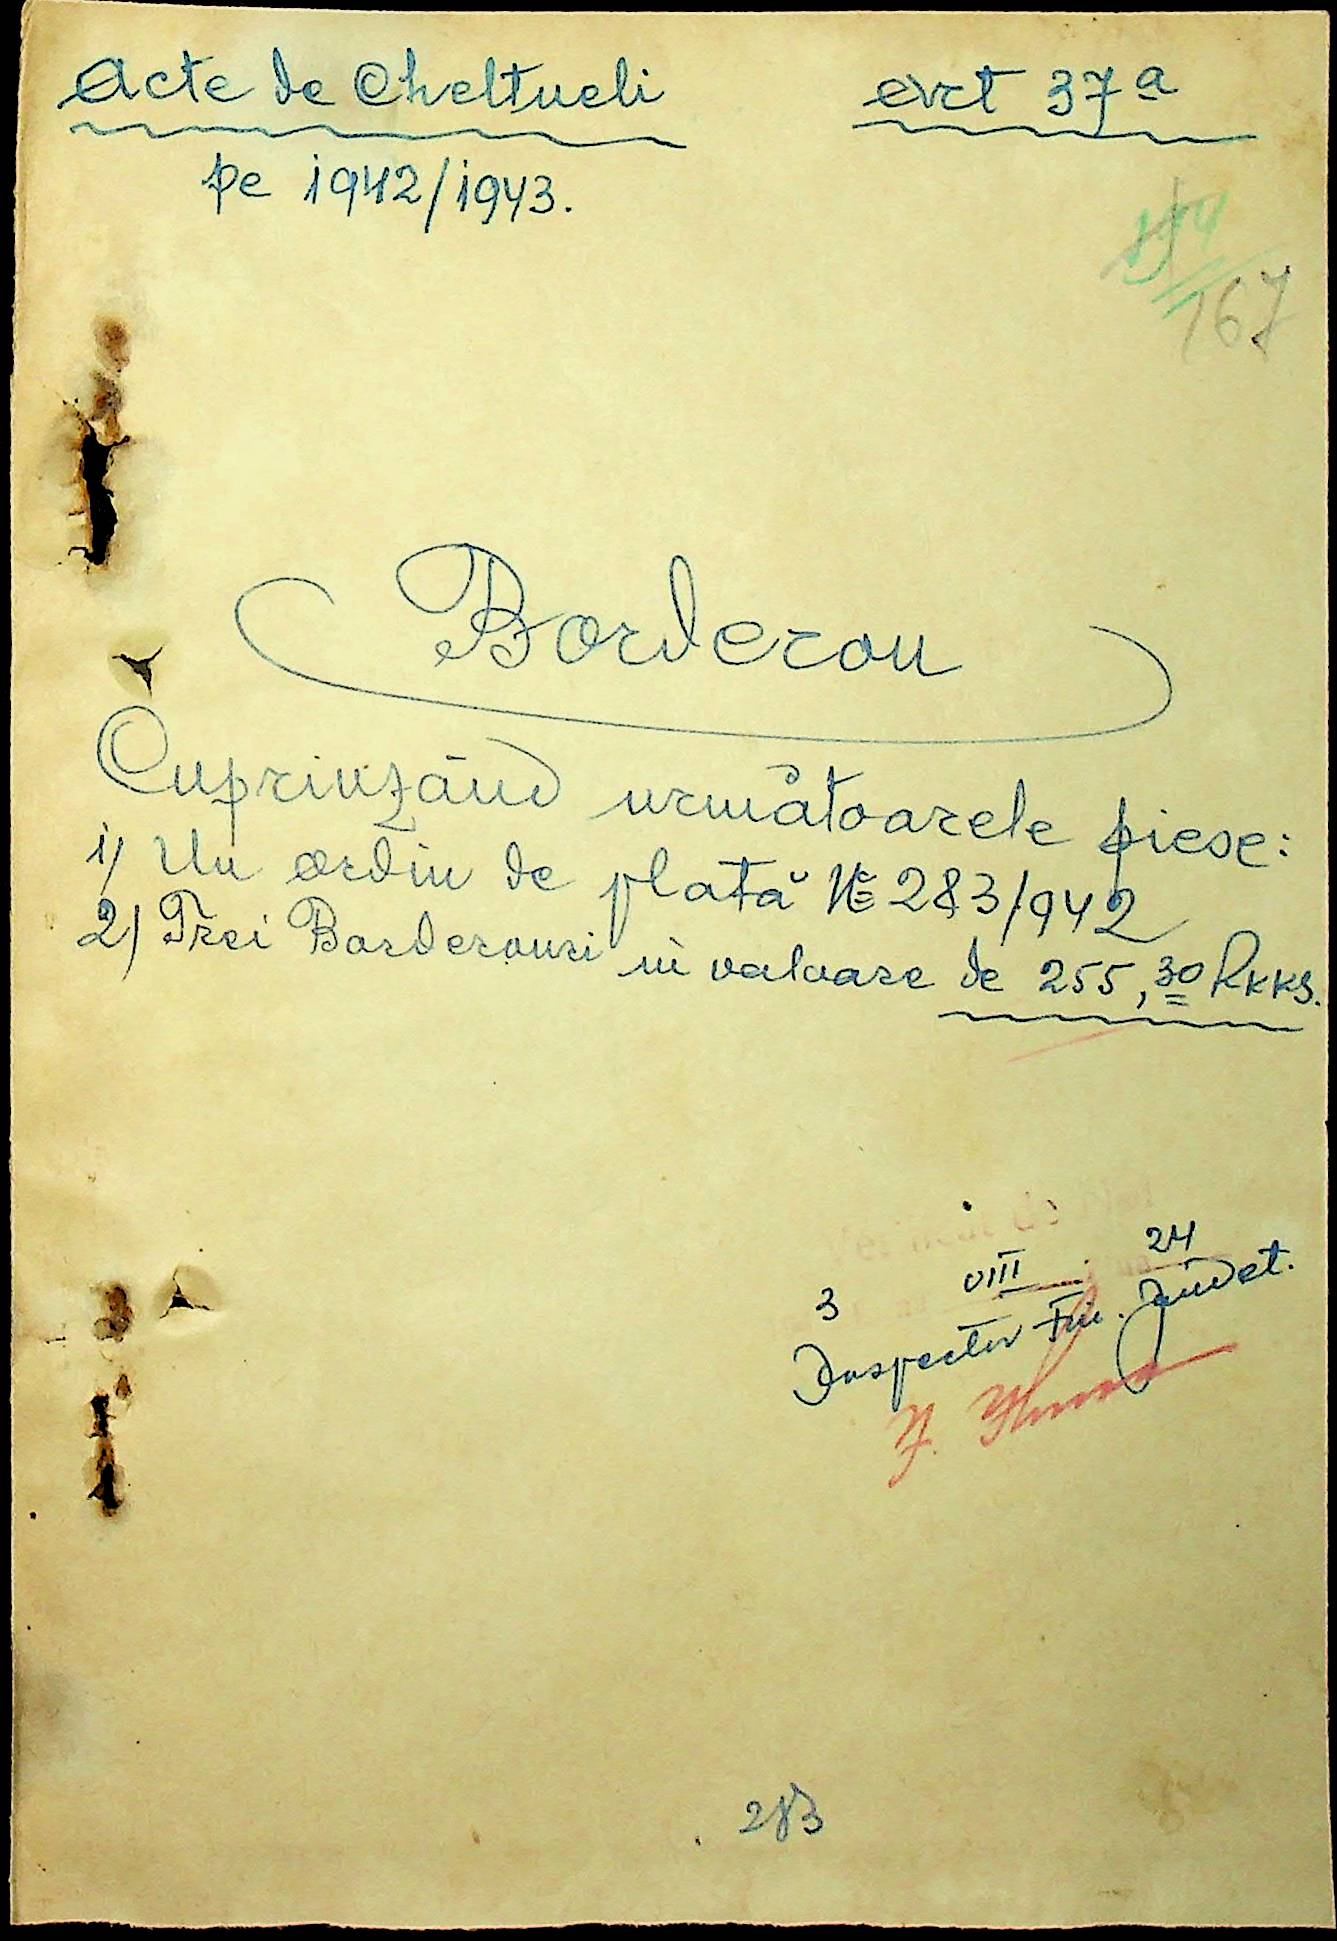 Acte de Cheltueli
art 37 a
pe 1942/1943.
167
Borderou
Cuprinzând următoarele piese:
1) Un ordin de plată № 283/942
2) Trei Borderouri în valoare de 255,30 Rkks.
3 VIII 24
Inspector Fin. Judet.
283